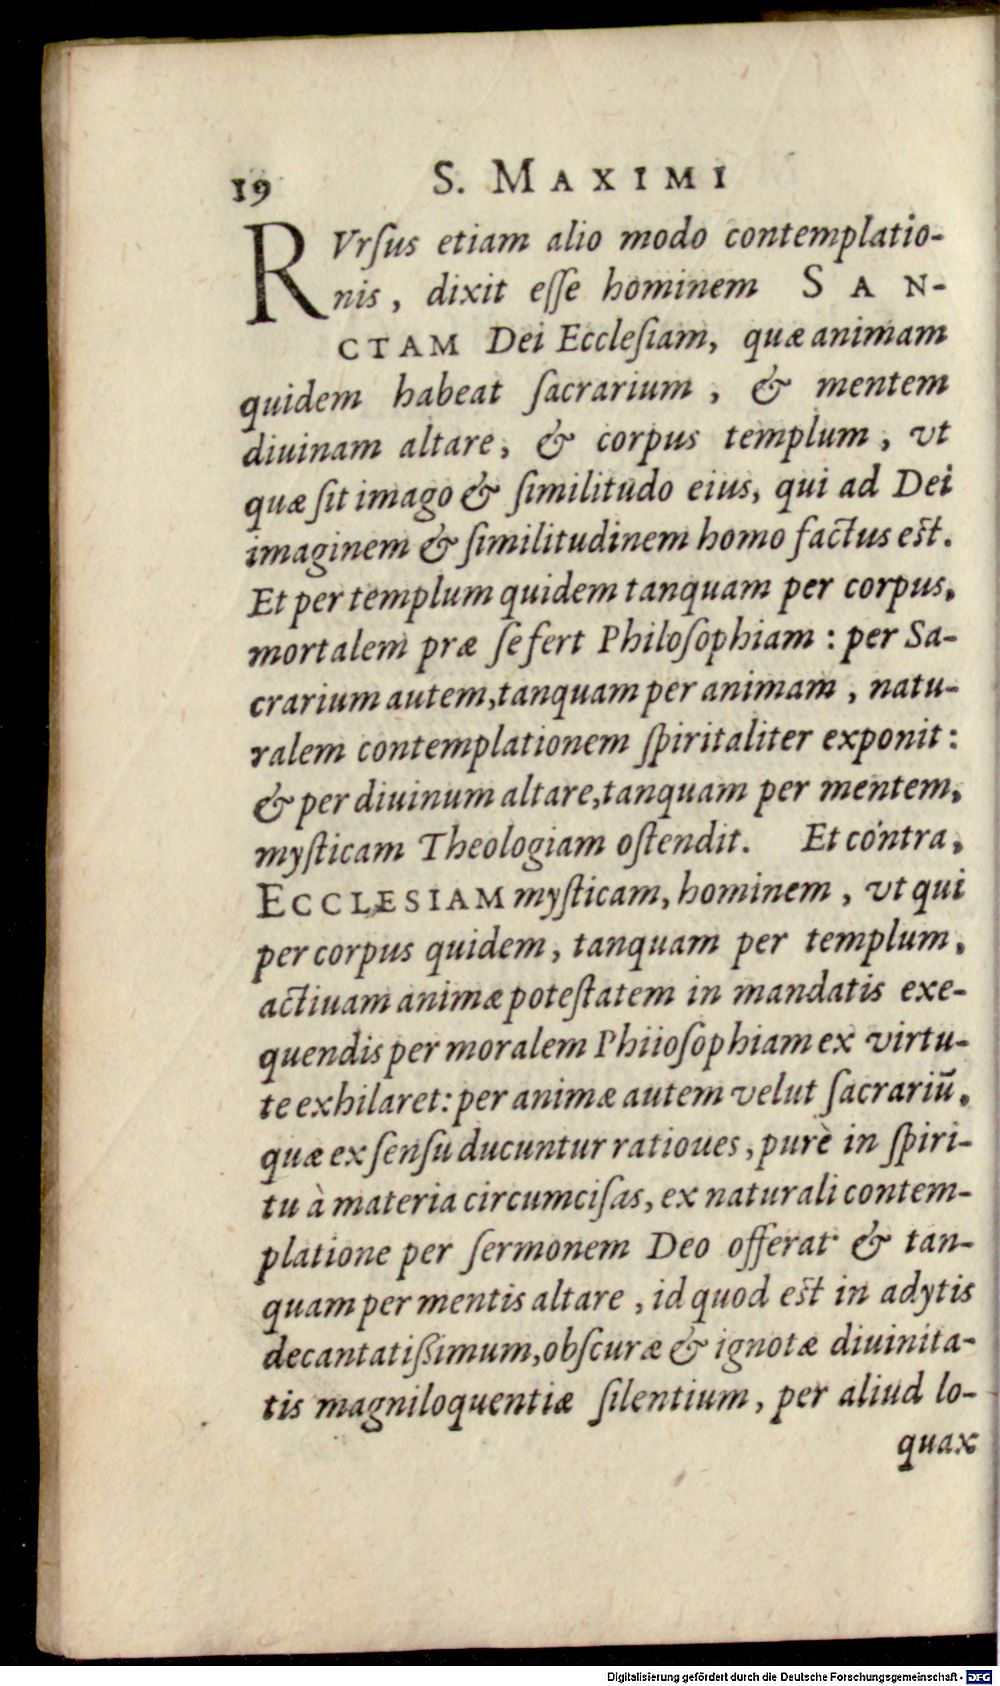 19 S. MAXIMI
RVrſus etiam alio modo contemplatio-
nis, dixit eſſe hominem SAN-
CTAM Dei Eccleſiam, quæ animam
quidem habeat ſacrarium, & mentem
diuinam altare, & corpus templum, vt
quæ ſit imago & ſimilitudo eius, qui ad Dei
imaginem & ſimilitudinem homo factus eſt.
Et per templum quidem tanquam per corpus,
mortalem præ ſe fert Philoſophiam: per Sa-
crarium autem, tanquam per animam, natu-
ralem contemplationem ſpiritaliter exponit:
& per diuinum altare, tanquam per mentem,
myſticam Theologiam oſtendit. Et cóntra,
ECCLESIAM myſticam, hominem, vt qui
per corpus quidem, tanquam per templum,
actiuam animæ poteſtatem in mandatis exe-
quendis per moralem Phiioſophiam ex virtu-
te exhilaret: per animæ autem velut ſacrariũ,
quæ ex ſenſu ducuntur ratioues, purè in ſpiri-
tu à materia circumciſas, ex naturali contem-
platione per ſermonem Deo offerat & tan-
quam per mentis altare, id quod eſt in adytis
decantatiſsimum, obſcuræ & ignotæ diuinita-
tis magniloquentiæ ſilentium, per aliud lo-
quax
Digitalisierung gefördert durch die Deutsche Forschungsgemeinschaft - DFG